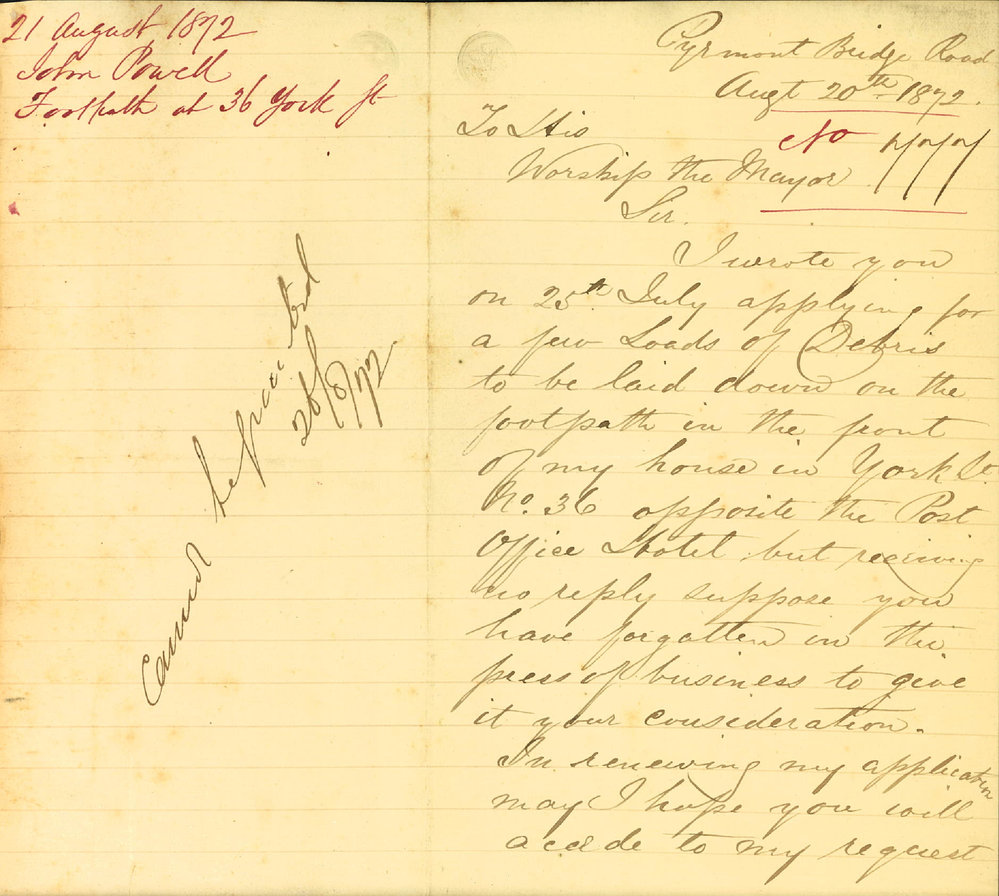 21 August 1872
John Powell
Footpath at 36 York St
Cannot be granted
26/8/72
Pyrmont Bridge Road
Augt 20th 1872.
No 777
To His
Worship the Mayor
Sir.
I wrote you
on 25th July applying for
a few Loads of Debris
to be laid down on the
footpath in the front
of my house in York St.
No. 36 opposite the Post
Office Hotel but receiving
no reply suppose you
have forgotten in the
press of business to give
it your consideration.
In renewing my application
may I hope you will
accede to my request